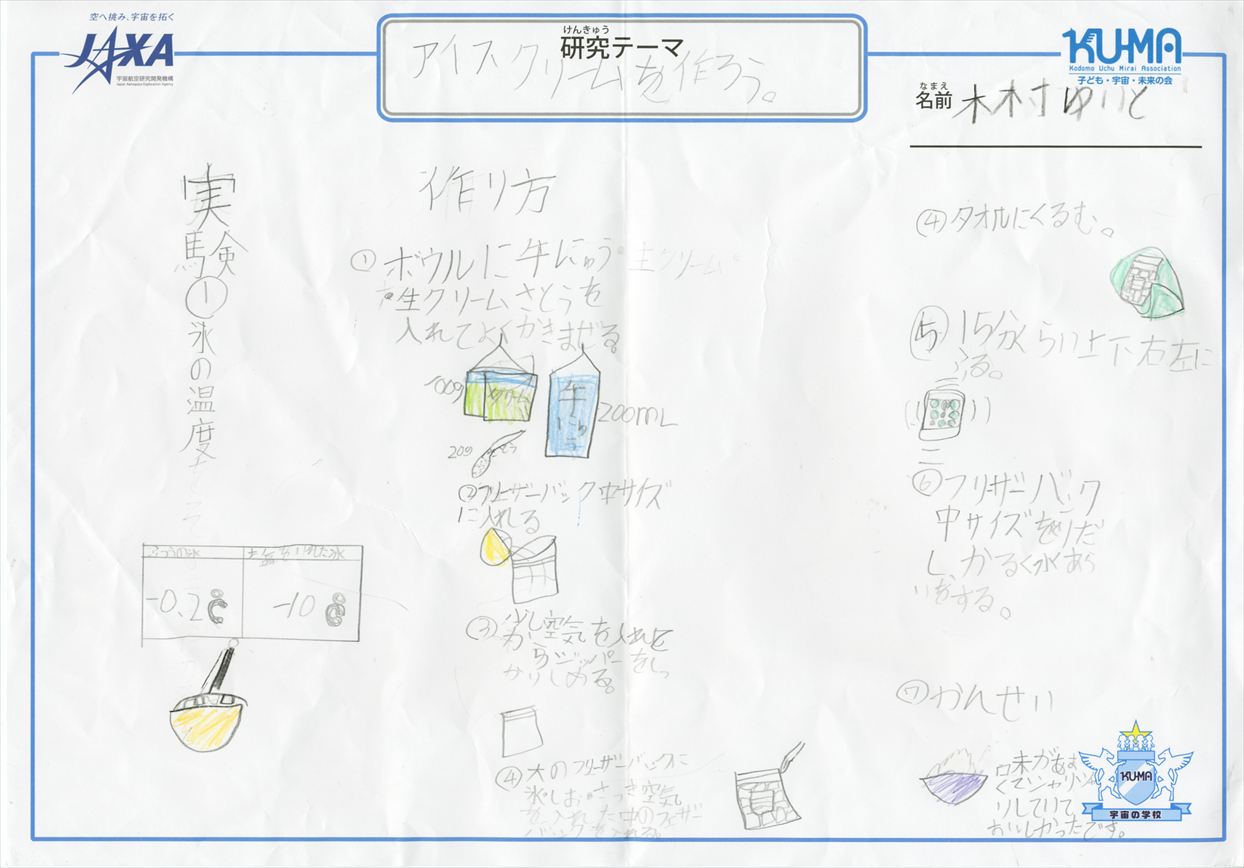 空へ挑み、宇宙を拓く
JAXA
宇宙航空研究開発機構
Japan Aerospace Exploration Agency
けんきゅう
研究テーマ
アイスクリームを作ろう。
KU-MA
Kodomo Uchu Mirai Association
子ども・宇宙・未来の会
なまえ
名前 木村ゆいと
実験①氷の温度
ふつうの氷
お塩をいれた氷
-0.2℃
-10℃
作り方
①ボウルに牛にゅう
生クリーム
生クリームさとうを
入れてよくかきまぜる。
100g
クリーム
牛にゅう
200mL
20g
さとう
②フリーザーバック中サイズ
に入れる
③少し空気を入れて
からジッパーをしっ
かりしめる。
④大のフリーザーバックに
氷しお・さっき空気
を入れた中のフリーザー
バックを入れる。
④タオルにくるむ。
⑤15分くらい上下右左に
ふる。
⑥フリーザーバック
中サイズをりだ
しかるく水あら
いをする。
⑦かんせい
味があま
くてシャリシャ
リしていて
おいしかったです。
KU-MA
宇宙の学校